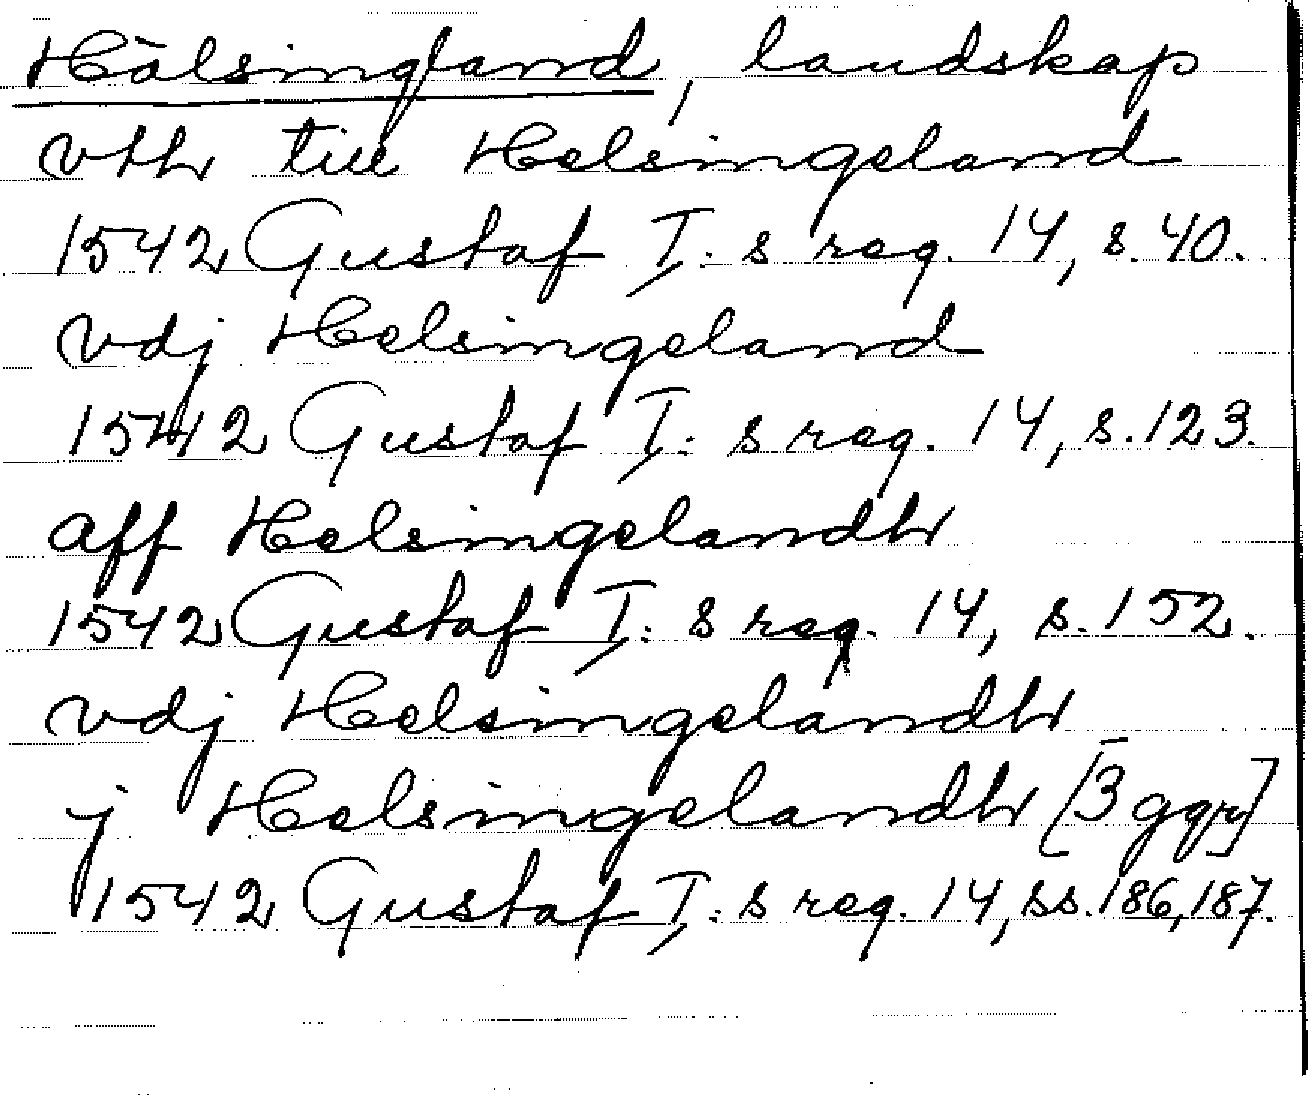 Hälsingland, landskap
vth till Helsingeland
1542 Gustaf I:s reg. 14, s. 40.
vdj Helsingeland
1542 Gustaf I:s reg. 14, s. 123.
aff Helsingelandh
1542 Gustaf I:s reg. 14, s. 152.
vdj Helsingelandh
j Helsingelandh [3 ggr]
1542 Gustaf I:s reg. 14, ss. 186, 187.